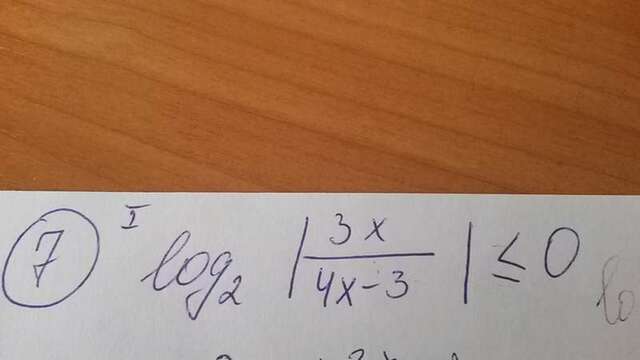 7 I log₂ |3x/(4x-3)| ≤ 0 lo